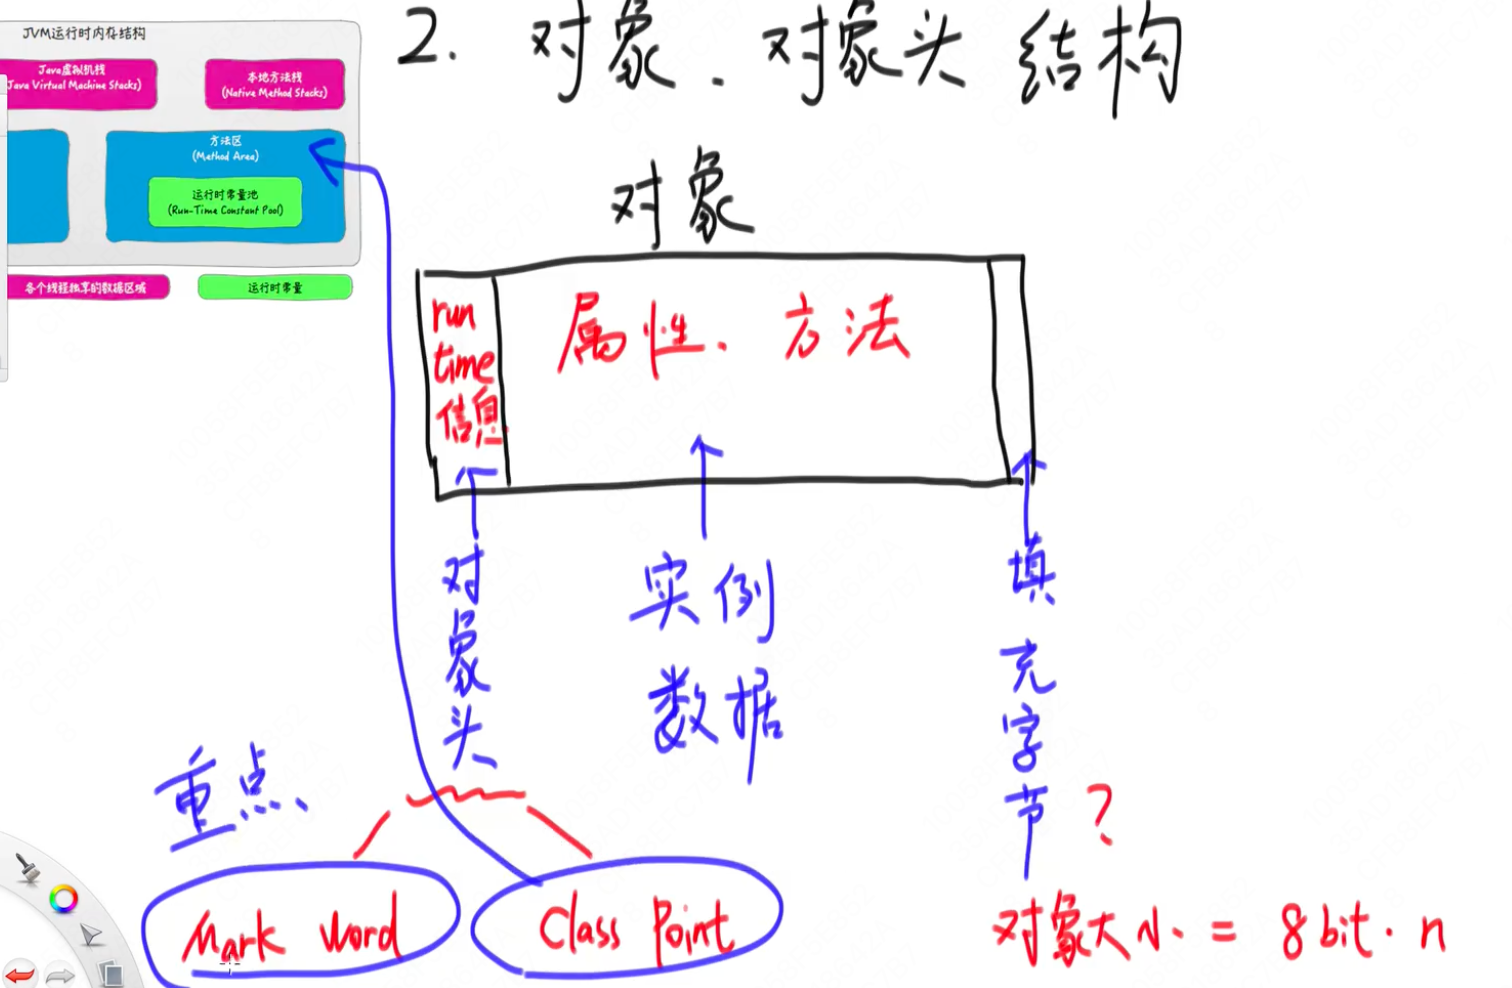 JVM运行时内存结构
Java虚拟机栈
Java Virtual Machine Stacks)
本地方法栈
(Native Method Stacks)
方法区
(Method Area)
运行时常量池
(Run-Time Constant Pool)
各个线程独享的数据区域
运行时常量
2. 对象、对象头结构
对象
run
time
信息
属性、方法
对象头
实例
数据
填充字节
?
重点、
Mark Word
Class Point
对象大小 = 8bit · n